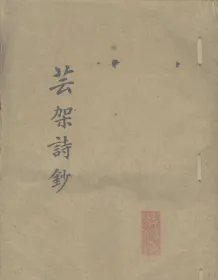 芸架詩鈔